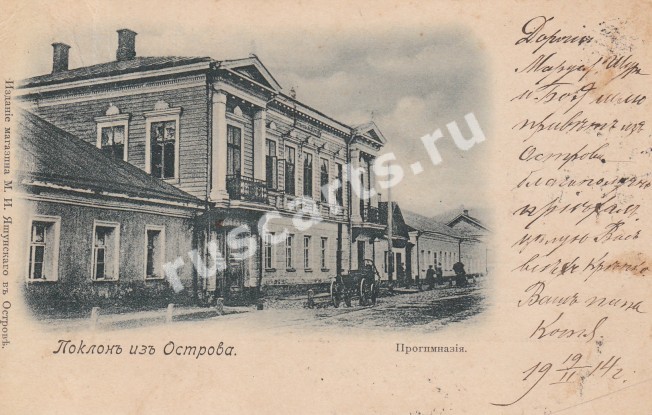 Изданіе магазина М. И. Яшунскаго въ Островѣ.
Поклонъ изъ Острова.
Прогимназія.
Дорогія
Маруся, Шура
и Боря шлю
привѣтъ изъ
Острова
благополучно
цѣлую Васъ
всѣхъ крѣпко
Вашъ папа
Костя
19 19/II 14 г.
ruscarts.ru